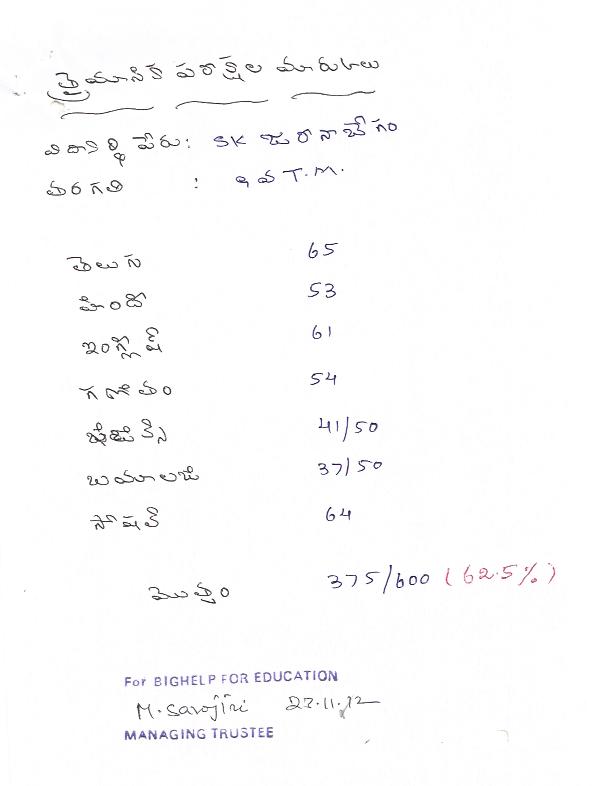 త్రైమాసిక పరీక్షల మార్కులు
విద్యార్థి పేరు: SK జురానాబేగం
తరగతి : 9వ T.M.
తెలుగు 65
హిందీ 53
ఇంగ్లీష్ 61
గణితం 54
ఫిజిక్స్ 41/50
బయాలజి 37/50
సోషల్ 64
మొత్తం 375/600 (62.5%)
For BIGHELP FOR EDUCATION
M. Sarojini 27.11.12
MANAGING TRUSTEE